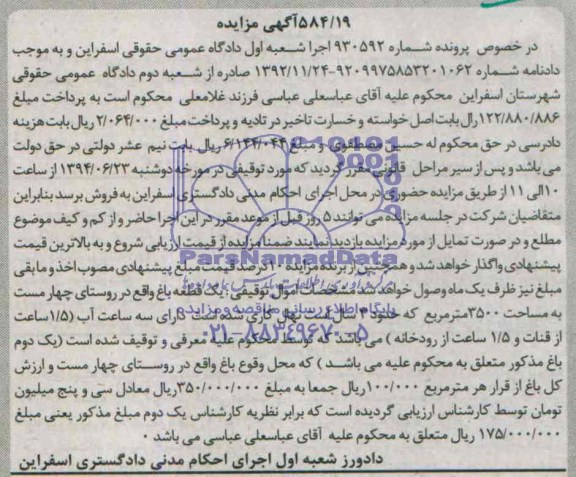 ۵۸۴/۱۹آگهی مزایده
در خصوص پرونده شماره ۹۳۰۵۹۲ اجرا شعبه اول دادگاه عمومی حقوقی اسفراین و به موجب
دادنامه شماره ۹۲۰۹۹۷۵۸۵۳۲۰۱۰۶۲-۱۳۹۲/۱۱/۲۴ صادره از شعبه دوم دادگاه عمومی حقوقی
شهرستان اسفراین محکوم علیه آقای عباسعلی عباسی فرزند غلامعلی محکوم است به پرداخت مبلغ
۱۲۲/۸۸۰/۸۸۶ریال بابت اصل خواسته و خسارت تاخیر در تادیه و پرداخت مبلغ ۲/۰۶۴/۰۰۰ ریال بابت هزینه
دادرسی در حق محکوم له حسین مصطفوی و مبلغ ریال بابت نیم عشر دولتی در حق دولت
می باشد و پس از سیر مراحل قانونی مقرر گردید که مورد توقیفی در مورخه دوشنبه ۱۳۹۴/۰۶/۲۳ از ساعت
۱۰الی ۱۱ از طریق مزایده حضوری در محل اجرای احکام مدنی دادگستری اسفراین به فروش برسد بنابراین
متقاضیان شرکت در جلسه مزایده می توانند ۵ روز قبل از موعد مقرر در این اجرا حاضر و از کم و کیف موضوع
مطلع و در صورت تمایل از مورد مزایده بازدید نمایند ضمنا مزایده از قیمت ارزیابی شروع و به بالاترین قیمت
پیشنهادی واگذار خواهد شد و همچنین از برنده مزایده ۱۰ درصد قیمت مبلغ پیشنهادی مصوب اخذ و مابقی
مبلغ نیز ظرف یک ماه وصول خواهد شد مشخصات اموال توقیفی: یک قطعه باغ واقع در روستای چهار مست
به مساحت ۳۵۰۰مترمربع که حدود سال است نهال کاری شده است دارای سه ساعت آب (۱/۵ساعت
از قنات و ۱/۵ ساعت از رودخانه ) می باشد که توسط محکوم علیه معرفی و توقیف شده است (یک دوم
باغ مذکور متعلق به محکوم علیه می باشد ) که محل وقوع باغ واقع در روستای چهار مست و ارزش
کل باغ از قرار هر مترمربع ۱۰۰/۰۰۰ریال جمعا به مبلغ ۳۵۰/۰۰۰/۰۰۰ریال معادل سی و پنج میلیون
تومان توسط کارشناس ارزیابی گردیده است که برابر نظریه کارشناس یک دوم مبلغ مذکور یعنی مبلغ
۱۷۵/۰۰۰/۰۰۰ ریال متعلق به محکوم علیه آقای عباسعلی عباسی می باشد ۰
دادورز شعبه اول اجرای احکام مدنی دادگستری اسفراین
ParsNamadData
پایگاه اطلاع رسانی مناقصه و مزایده
۰۲۱-۸۸۳۴۹۶۷۰-۵